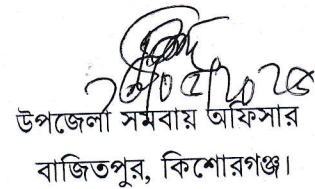 উপজেলা সমবায় অফিসার
বাজিতপুর, কিশোরগঞ্জ।